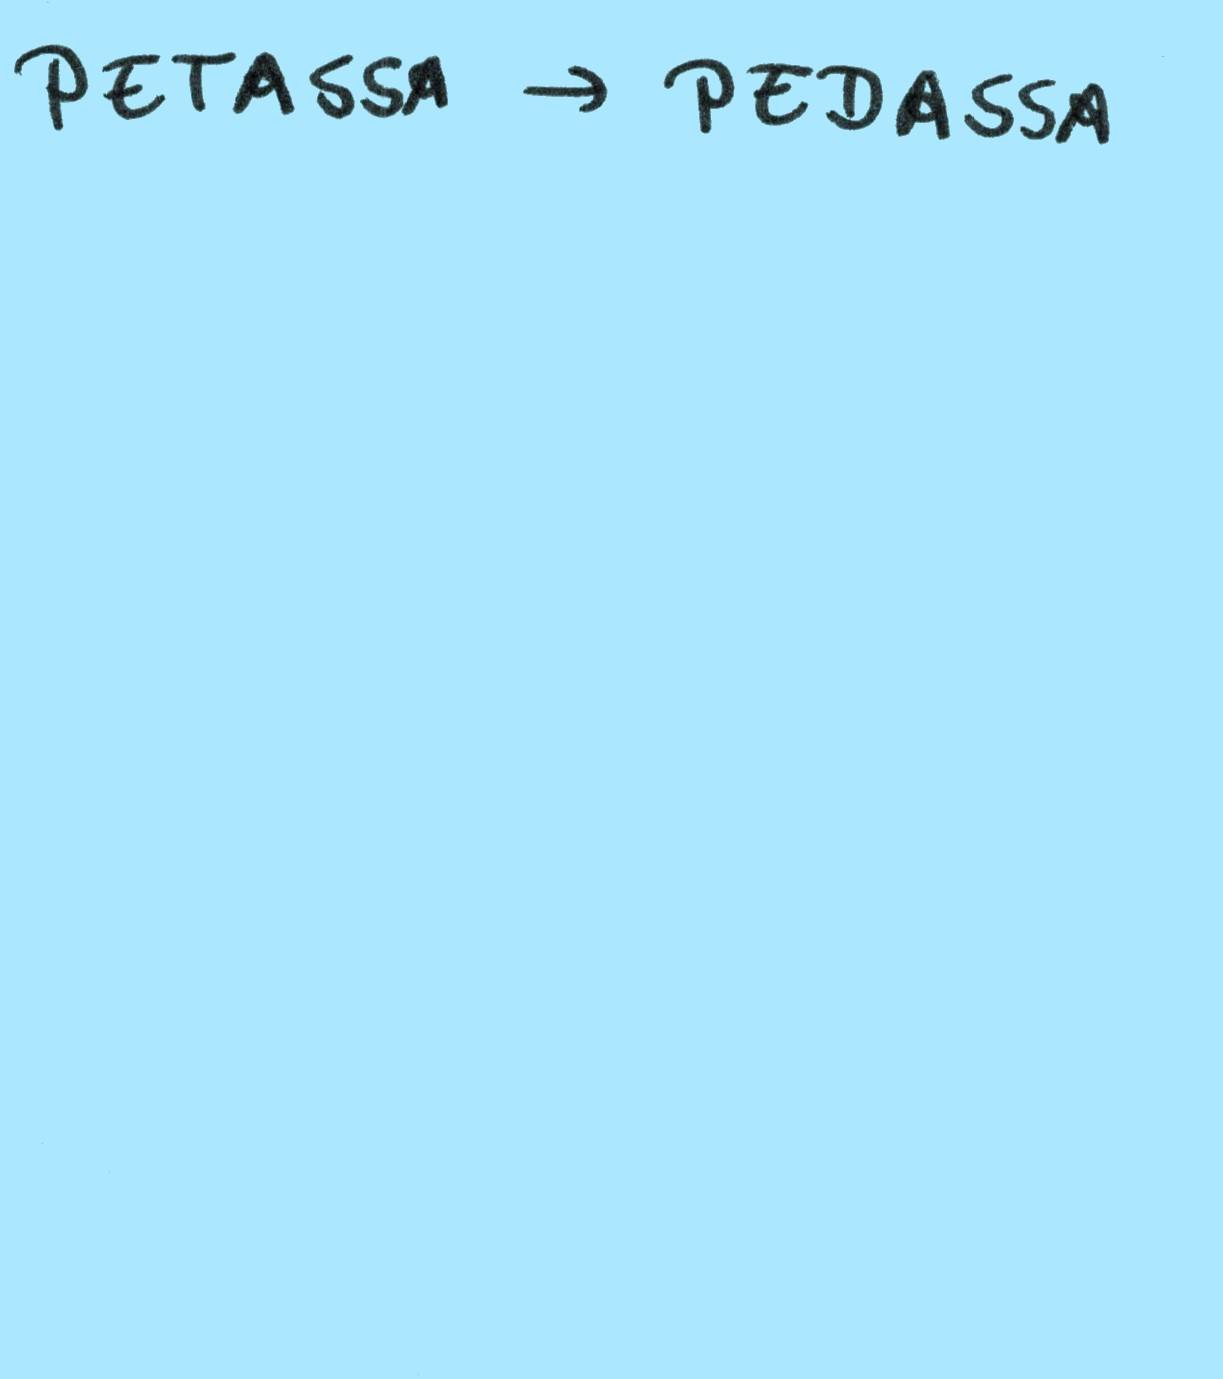 PETASSA → PEDASSA